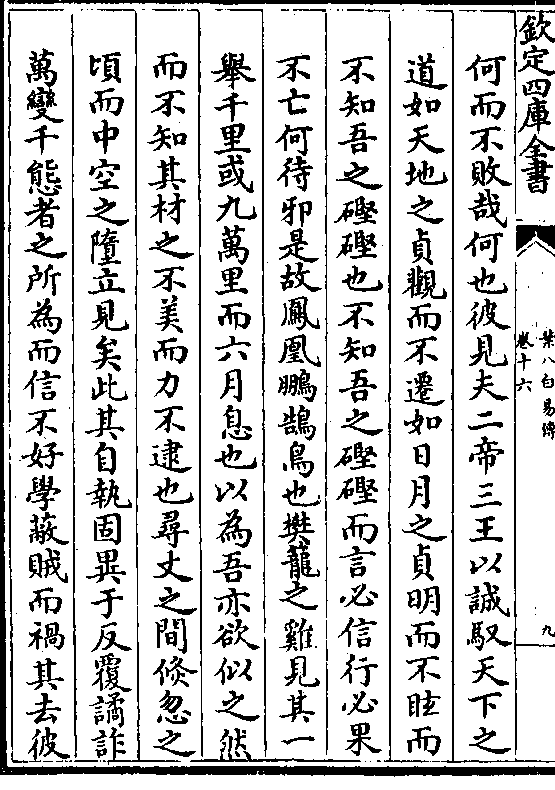 欽定四庫全書
葉八白易傳
卷十六
九
何而不敗哉何也彼見夫二帝三王以誠馭天下之
道如天地之貞觀而不遷如日月之貞明而不眩而
不知吾之硜硜也不知吾之硜硜而言必信行必果
不亡何待邪是故鳳凰鵬鵠鳥也樊籠之雞見其一
舉千里或九萬里而六月息也以為吾亦欲似之然
而不知其材之不美而力不逮也尋丈之間倐忽之
頃而中空之墮立見矣此其自執固異于反覆譎詐
萬變千態者之所為而信不好學蔽賊而禍其去彼